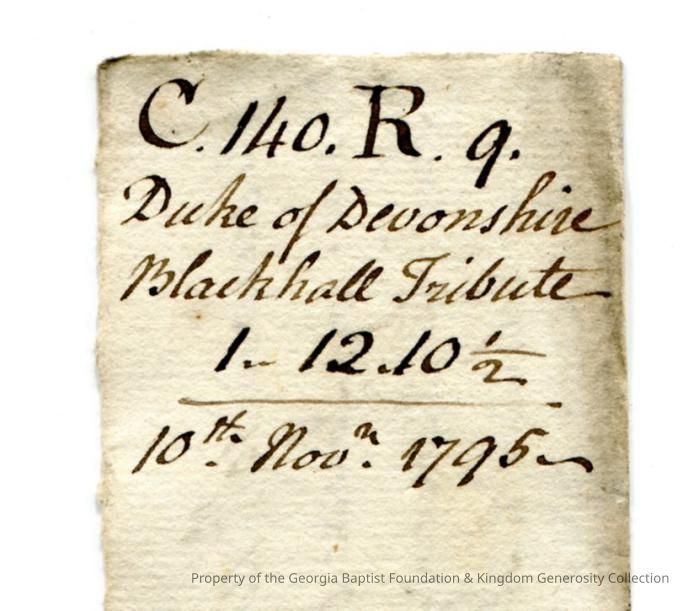 C. 140. R. 9.
Duke of Devonshire
Blackhall Tribute
1 - 12.10 1/2
10th. Novr. 1795
Property of the Georgia Baptist Foundation & Kingdom Generosity Collection